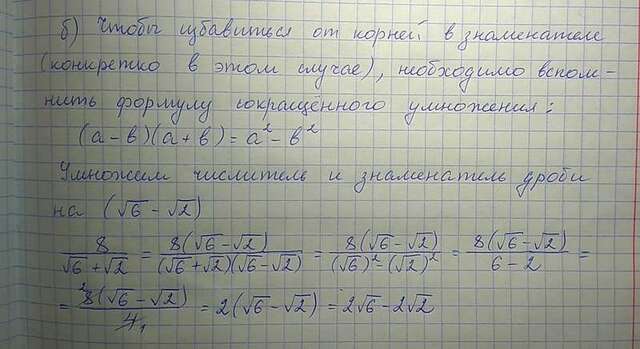 б) Чтобы избавиться от корней в знаменателе
(конкретно в этом случае), необходимо вспом-
нить формулу сокращённого умножения:
(a-b)(a+b)=a²-b²
Умножим числитель и знаменатель дроби
на (√6-√2)
8/(√6+√2) = 8(√6-√2)/((√6+√2)(√6-√2)) = 8(√6-√2)/((√6)²-(√2)²) = 8(√6-√2)/(6-2) =
= ²8(√6-√2)/4₁ = 2(√6-√2) = 2√6-2√2